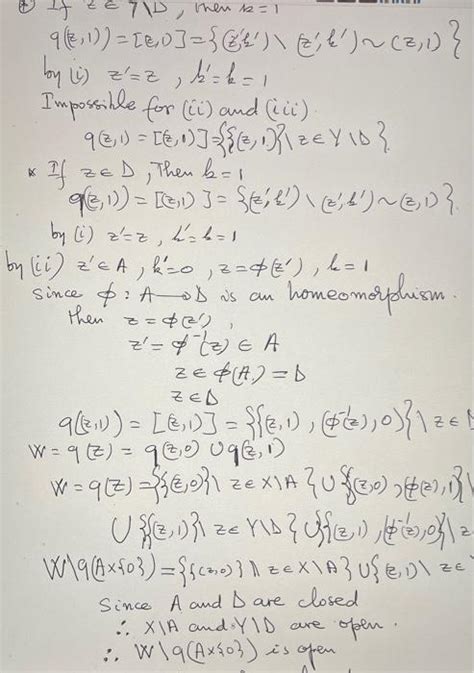 * If z ∈ Y\D, then k=1
q(z,1)) = [z,1)] = {(z',k') \ (z',k') ~ (z,1)}
by (i) z'=z , k'=k=1
Impossible for (ii) and (iii).
q(z,1) = [(z,1)] = {{(z,1)} \ z ∈ Y\D}.
* If z ∈ D, Then k=1
q(z,1)) = [(z,1)] = {(z',k') \ (z',k') ~ (z,1)}.
by (i) z'=z , k'=k=1
by (ii) z' ∈ A , k'=0 , z=ϕ(z') , k=1
Since ϕ : A → D is an homeomorphism.
then z = ϕ(z') ,
z' = ϕ⁻¹(z) ∈ A
z ∈ ϕ(A) = D
z ∈ D
q((z,1)) = [(z,1)] = {{(z,1) , (ϕ⁻¹(z),0)} \ z ∈ D
W = q(Z) = q(z,0) ∪ q(z,1)
W = q(Z) = {{(z,0)} \ z ∈ X\A} ∪ {{(z,0) , (ϕ(z),1)} \
∪ {{(z,1)} \ z ∈ Y\D} ∪ {{(z,1) , (ϕ⁻¹(z),0)} \ z
W\q(A×{0}) = {{(z,0)} \ z ∈ X\A} ∪ {(z,1) \ z ∈
Since A and D are closed
∴ X\A and Y\D are open.
∴ W\q(A×{0}) is open